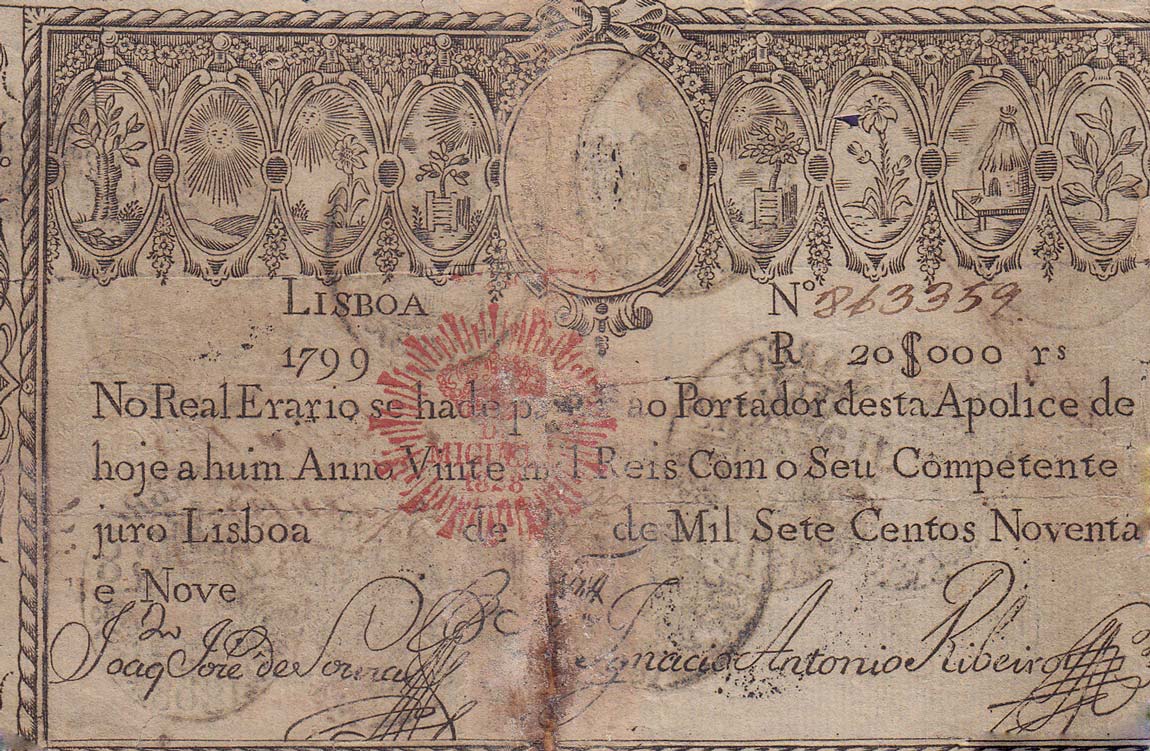 LISBOA
Nº 863359
1799
R 20$000 rs
No Real Erario se ha de ao Portador desta Apolice de
hoje a hum Anno Vinte mil Reis Com o Seu Competente
juro Lisboa de de Mil Sete Centos Noventa
e Nove
D.
MIGUEL
1828
Joaq José de Souza
Ignacio Antonio Ribeiro